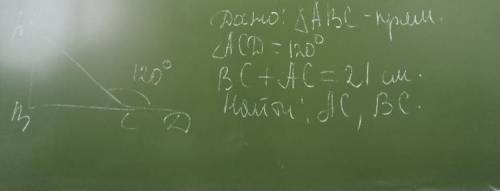 Дано: △ABC - прям.
∠ACD = 120°
BC + AC = 21 см.
Найти: AC, BC.
A
120°
B
C
D